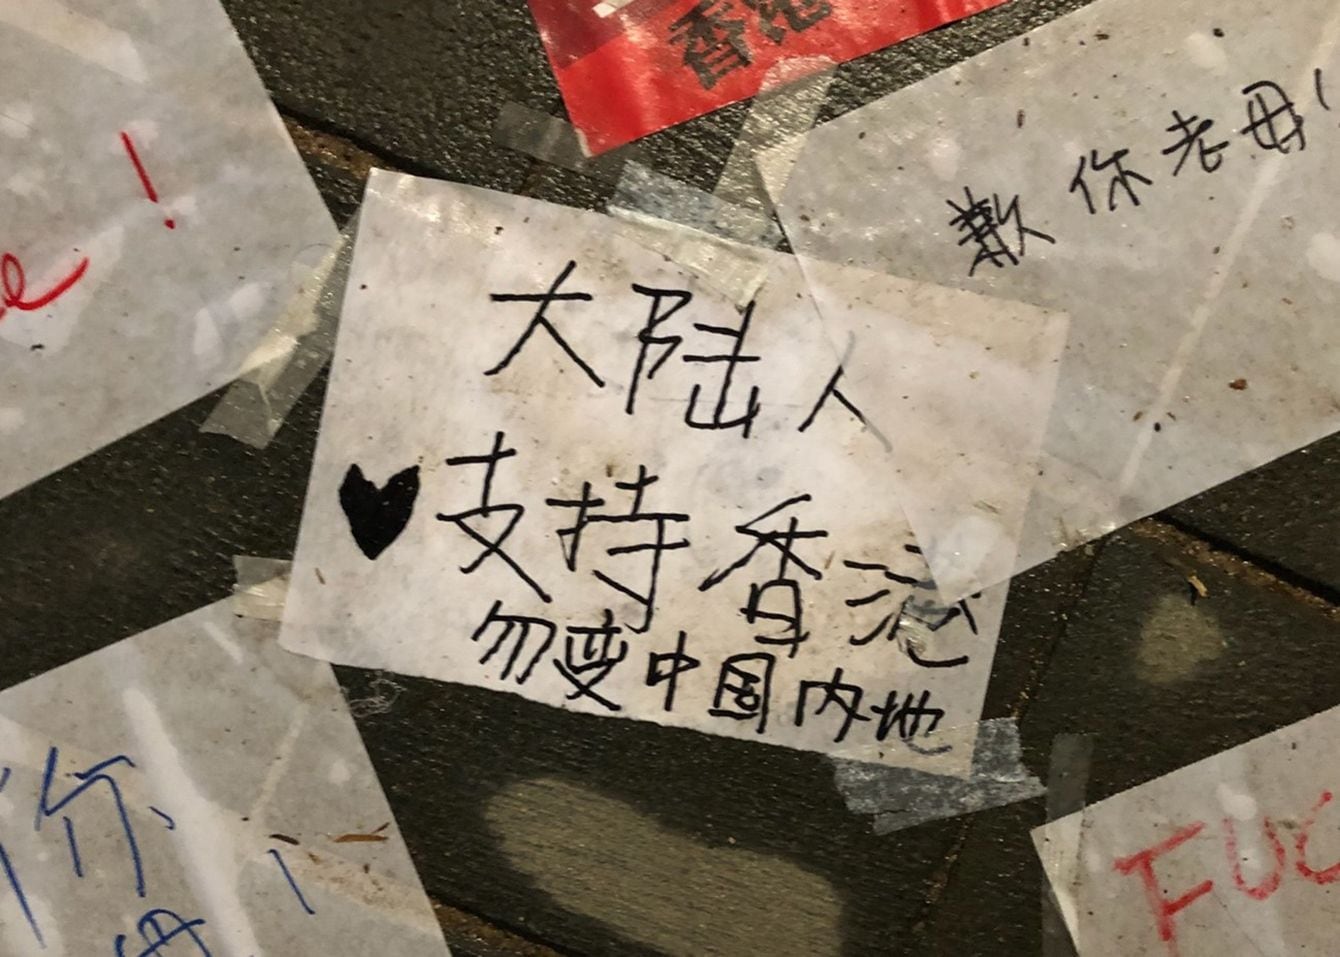 香港
歉你老母!
!
大陆人
♥支持香港
勿变中国内地
你
母!
FUC